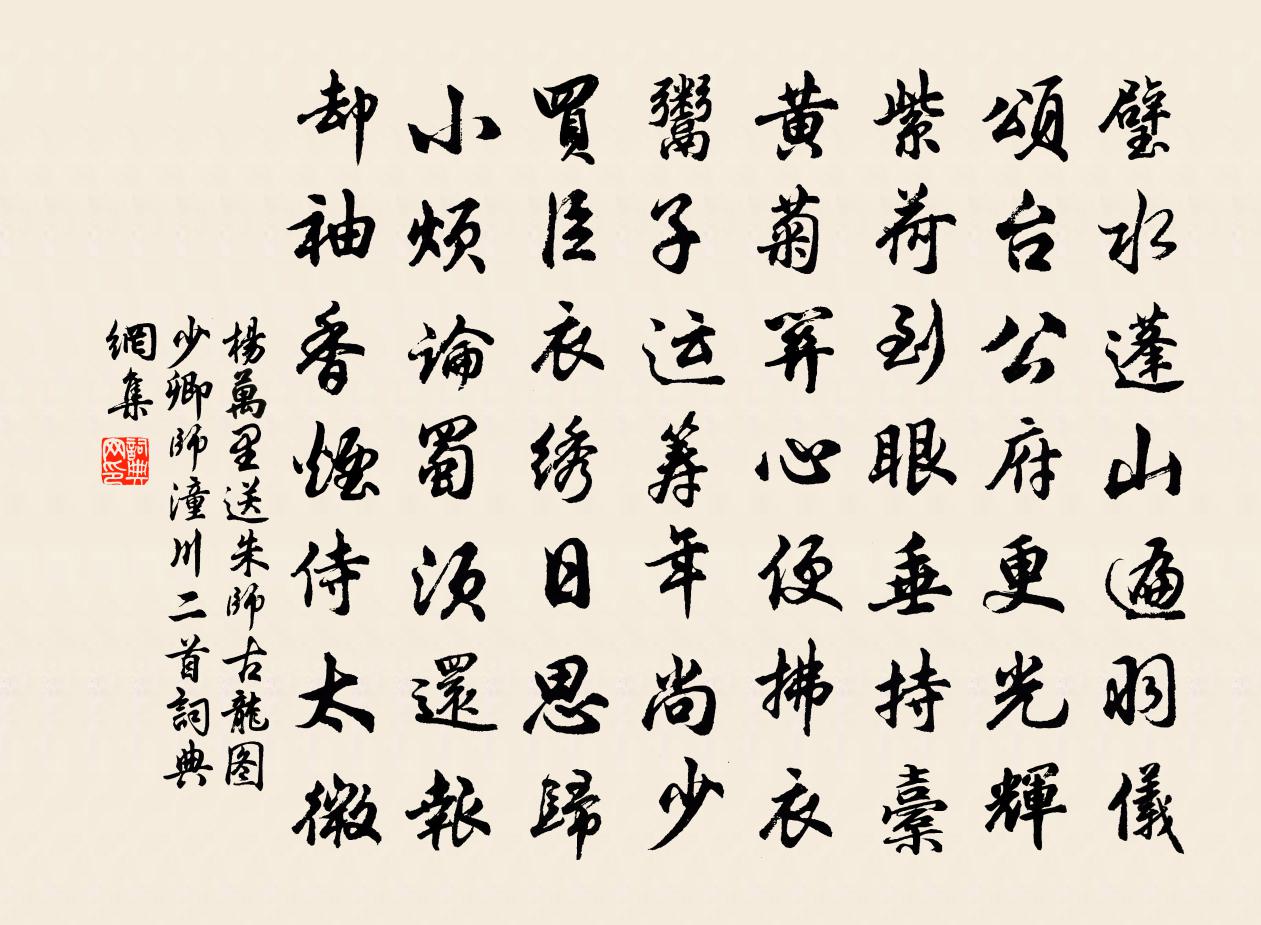 璧水蓬山遍羽儀
頌台公府更光輝
紫荷到眼垂持橐
黃菊關心便拂衣
鬻子运筹年尚少
買臣衣绣日思歸
小烦論蜀須還報
却袖香煙侍太微
楊萬里送朱師古龍图
少卿師潼川二首詞典
網集
詞典網印